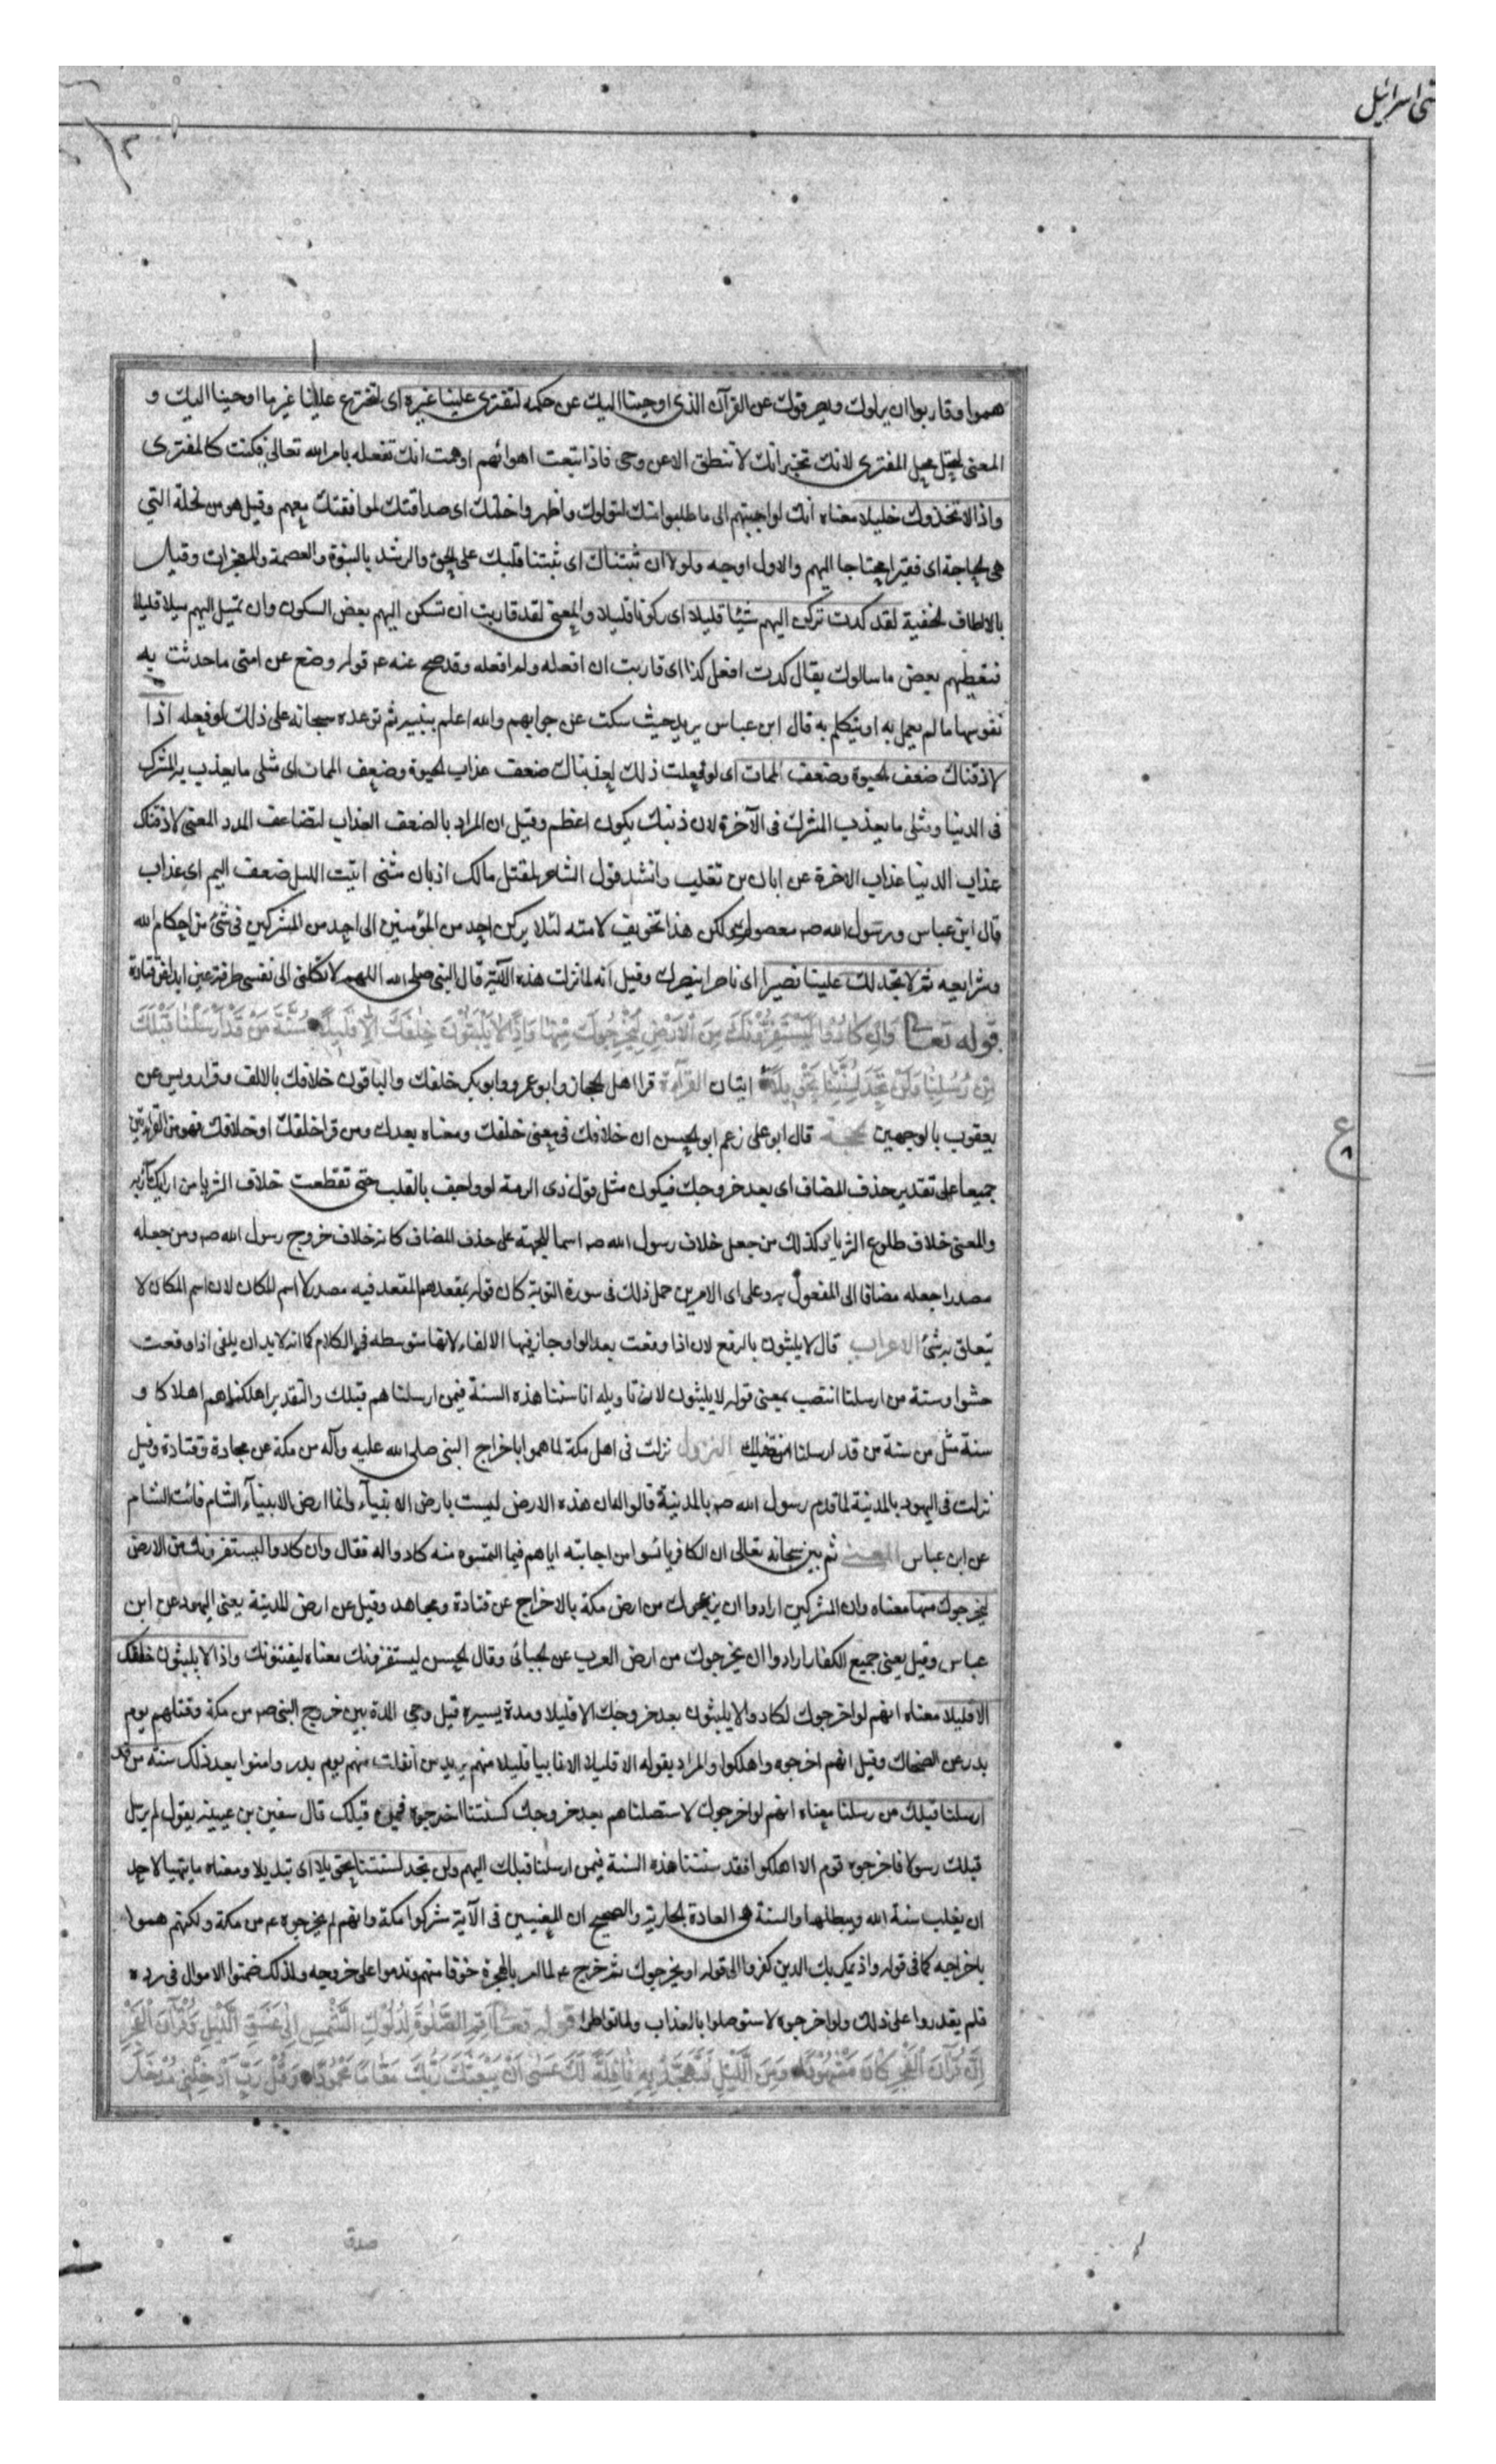 بنی اسرائیل
هموا وقاربوا ان يزلوك ويصرفوك عن القرآن الذى اوحينا اليك عن حكمه لتفترى علينا غيره اى لتخترع علينا غير ما اوحينا اليك و
المعنى لتحل محل المفترى لانك تخبر انك لا تنطق الا عن وحى فاذا اتبعت اهوائهم اوهمت انك تفعله بامر الله تعالى فكنت كالمفترى
واذا لاتخذوك خليلا معناه انك لو اجبتهم الى ما طلبوا منك لتولوك واظهروا خلتك اى صداقتك لموافقتك معهم وقيل هو من الخلة التي
هى الحاجة اى فقيرا محتاجا اليهم والاول اوجه ولولا ان ثبتناك اى ثبتنا قلبك على الحق والرشد بالنبوة والعصمة والمعجزات وقيل
بالالطاف الخفية لقد كدت تركن اليهم شيئا قليلا اى ركونا قليلا والمعنى لقد قاربت ان تسكن اليهم بعض السكون وان تميل اليهم ميلا قليلا
فتعطيهم بعض ما سالوك يقال كدت افعل كذا اى قاربت ان افعله ولم افعله وقد صح عنه ع قوله وضع عن امتى ما حدثت به
نفوسها ما لم يعمل به او يتكلم به قال ابن عباس يريد حيث سكت عن جوابهم والله اعلم بنبيه ثم توعده سبحانه على ذلك لو فعله اذا
لاذقناك ضعف الحيوة وضعف الممات اى لو فعلت ذلك لعذبناك ضعف عذاب الحيوة وضعف الممات اى مثلى ما يعذب به المشرك
فى الدنيا ومثلى ما يعذب المشرك فى الآخرة لان ذنبك يكون اعظم وقيل ان المراد بالضعف العذاب لتضاعف المدد المعنى لاذقناك
عذاب الدنيا عذاب الاخرة عن ابان بن تغلب وانشد قول الشاعر لمقتل مالك اذ بان منى ابيت الليل ضعف اليم اى عذاب
قال ابن عباس ورسول الله صم معصوم ولكن هذا تخويف لامته لئلا يركن احد من المؤمنين الى احد من المشركين فى شئ من احكام الله
وشرايعه ثم لا تجد لك علينا نصيرا اى ناصرا ينصرك وقيل انه لما نزلت هذه الآية قال النبى صلى الله اللهم لا تكلنى الى نفسى طرفة عين ابدا عن قتادة
قوله تعالى وَاِنْ كَادُوا لَيَسْتَفِزُّونَكَ مِنَ الْاَرْضِ لِيُخْرِجُوكَ مِنْهَا وَاِذًا لَا يَلْبَثُونَ خِلَافَكَ اِلَّا قَلِيلًا سُنَّةَ مَنْ قَدْ اَرْسَلْنَا قَبْلَكَ
مِنْ رُسُلِنَا وَلَنْ تَجِدَ لِسُنَّتِنَا تَحْوِيلًا ايتان القرآءة قرا اهل الحجاز وابو عمرو وابو بكر خلفك والباقون خلافك بالالف وقرا رويس عن
يعقوب بالوجهين الحجة قال ابو على زعم ابو الحسن ان خلافك فى معنى خلفك ومعناه بعدك ومن قرا خلفك او خلافك فهو من القراءتين
جميعا على تقدير حذف المضاف اى بعد خروجك فيكون مثل قول ذى الرمة له واحف بالقلب حتى تقطعت خلاف الثريا من اريك مآربه
والمعنى خلاف طلوع الثريا وكذلك من جعل خلاف رسول الله صم اسما للجهة على حذف المضاف كانه خلاف خروج رسول الله صم ومن جعله
مصدرا جعله مضافا الى المفعول به وعلى اى الامرين حمل ذلك فى سورة التوبة كان قوله بمقعدهم المقعد فيه مصدر لا اسم المكان لان اسم المكان لا
يتعلق به شئ الاعراب قال لا يلبثون بالرفع لان اذا وقعت بعد الواو جاز فيها الالغاء لانها متوسطه فى الكلام كما انه لا بد ان يلغى اذا وقعت
حشوا وسنة من ارسلنا انتصب بمعنى قوله لا يلبثون لان تاويله انا سننا هذه السنة فيمن ارسلناهم قبلك والتقدير اهلكناهم اهلاكا و
سنة مثل من سنة من قد ارسلنا من قبلك النزول نزلت فى اهل مكة لما هموا باخراج النبى صلى الله عليه وآله من مكة عن مجاهد وقتادة وقيل
نزلت فى اليهود بالمدينة لما قدم رسول الله صم بالمدينة قالوا له ان هذه الارض ليست بارض الانبياء وانما ارض الانبياء الشام فائت الشام
عن ابن عباس المعنى ثم بين سبحانه تعالى ان الكافر يائسوا من اجابته اياهم فيما التمسوه منه كادوا له فقال وان كادوا ليستفزونك من الارض
ليخرجوك منها معناه وان المشركين ارادوا ان يزعجوك من ارض مكة بالاخراج عن قتادة ومجاهد وقيل عن ارض المدينة يعنى اليهود عن ابن
عباس وقيل يعنى جميع الكفار ارادوا ان يخرجوك من ارض العرب عن الجبائى وقال الحسن ليستفزونك معناه ليفتنونك واذا لا يلبثون خلفك
الا قليلا معناه انهم لو اخرجوك لكادوا لا يلبثون بعد خروجك الا قليلا ومدة يسيرة قيل وهى المدة بين خروج النبى صم من مكة وقتلهم يوم
بدر عن الضحاك وقيل انهم اخرجوه واهلكوا والمراد بقوله الا قليلا الا ناسا قليلا منهم يريد من انفلت منهم يوم بدر وامنوا بعد ذلك سنة من قد
ارسلنا قبلك من رسلنا معناه انهم لو اخرجوك لاستصلناهم بعد خروجك كسنتنا اخرجوه فيمن قبلك قال سفين بن عيينه يقول لم يرسل
قبلك رسولا فاخرجوه قوم الا اهلكوا فقد سنتنا هذه السنة فيمن ارسلنا قبلك اليهم ولن تجد لسنتنا تحويلا اى تبديلا ومعناه ما يتهيا لاحد
ان يقلب سنة الله ويبطلها والسنة هى العادة الجارية والصحيح ان المعنيين فى الآية مشركوا مكة وانهم لم يخرجوه ع من مكة ولكنهم هموا
باخراجه كما فى قوله واذ يمكر بك الذين كفروا الى قوله او يخرجوك ثم خرج ع لما امر بالهجرة خوفا منهم وندموا على خروجه ولذلك ضمنوا الاموال فى رده
فلم يقدروا على ذلك ولو اخرجوه لاستوصلوا بالعذاب ولماتوا طرا قوله تعالى اَقِمِ الصَّلٰوةَ لِدُلُوكِ الشَّمْسِ اِلٰى غَسَقِ الَّيْلِ وَقُرْآنَ الْفَجْرِ
اِنَّ قُرْآنَ الْفَجْرِ كَانَ مَشْهُودًا وَمِنَ الَّيْلِ فَتَهَجَّدْ بِهِ نَافِلَةً لَكَ عَسٰى اَنْ يَبْعَثَكَ رَبُّكَ مَقَامًا مَحْمُودًا وَقُلْ رَبِّ اَدْخِلْنِى مُدْخَلَ
صدق
ع
۸